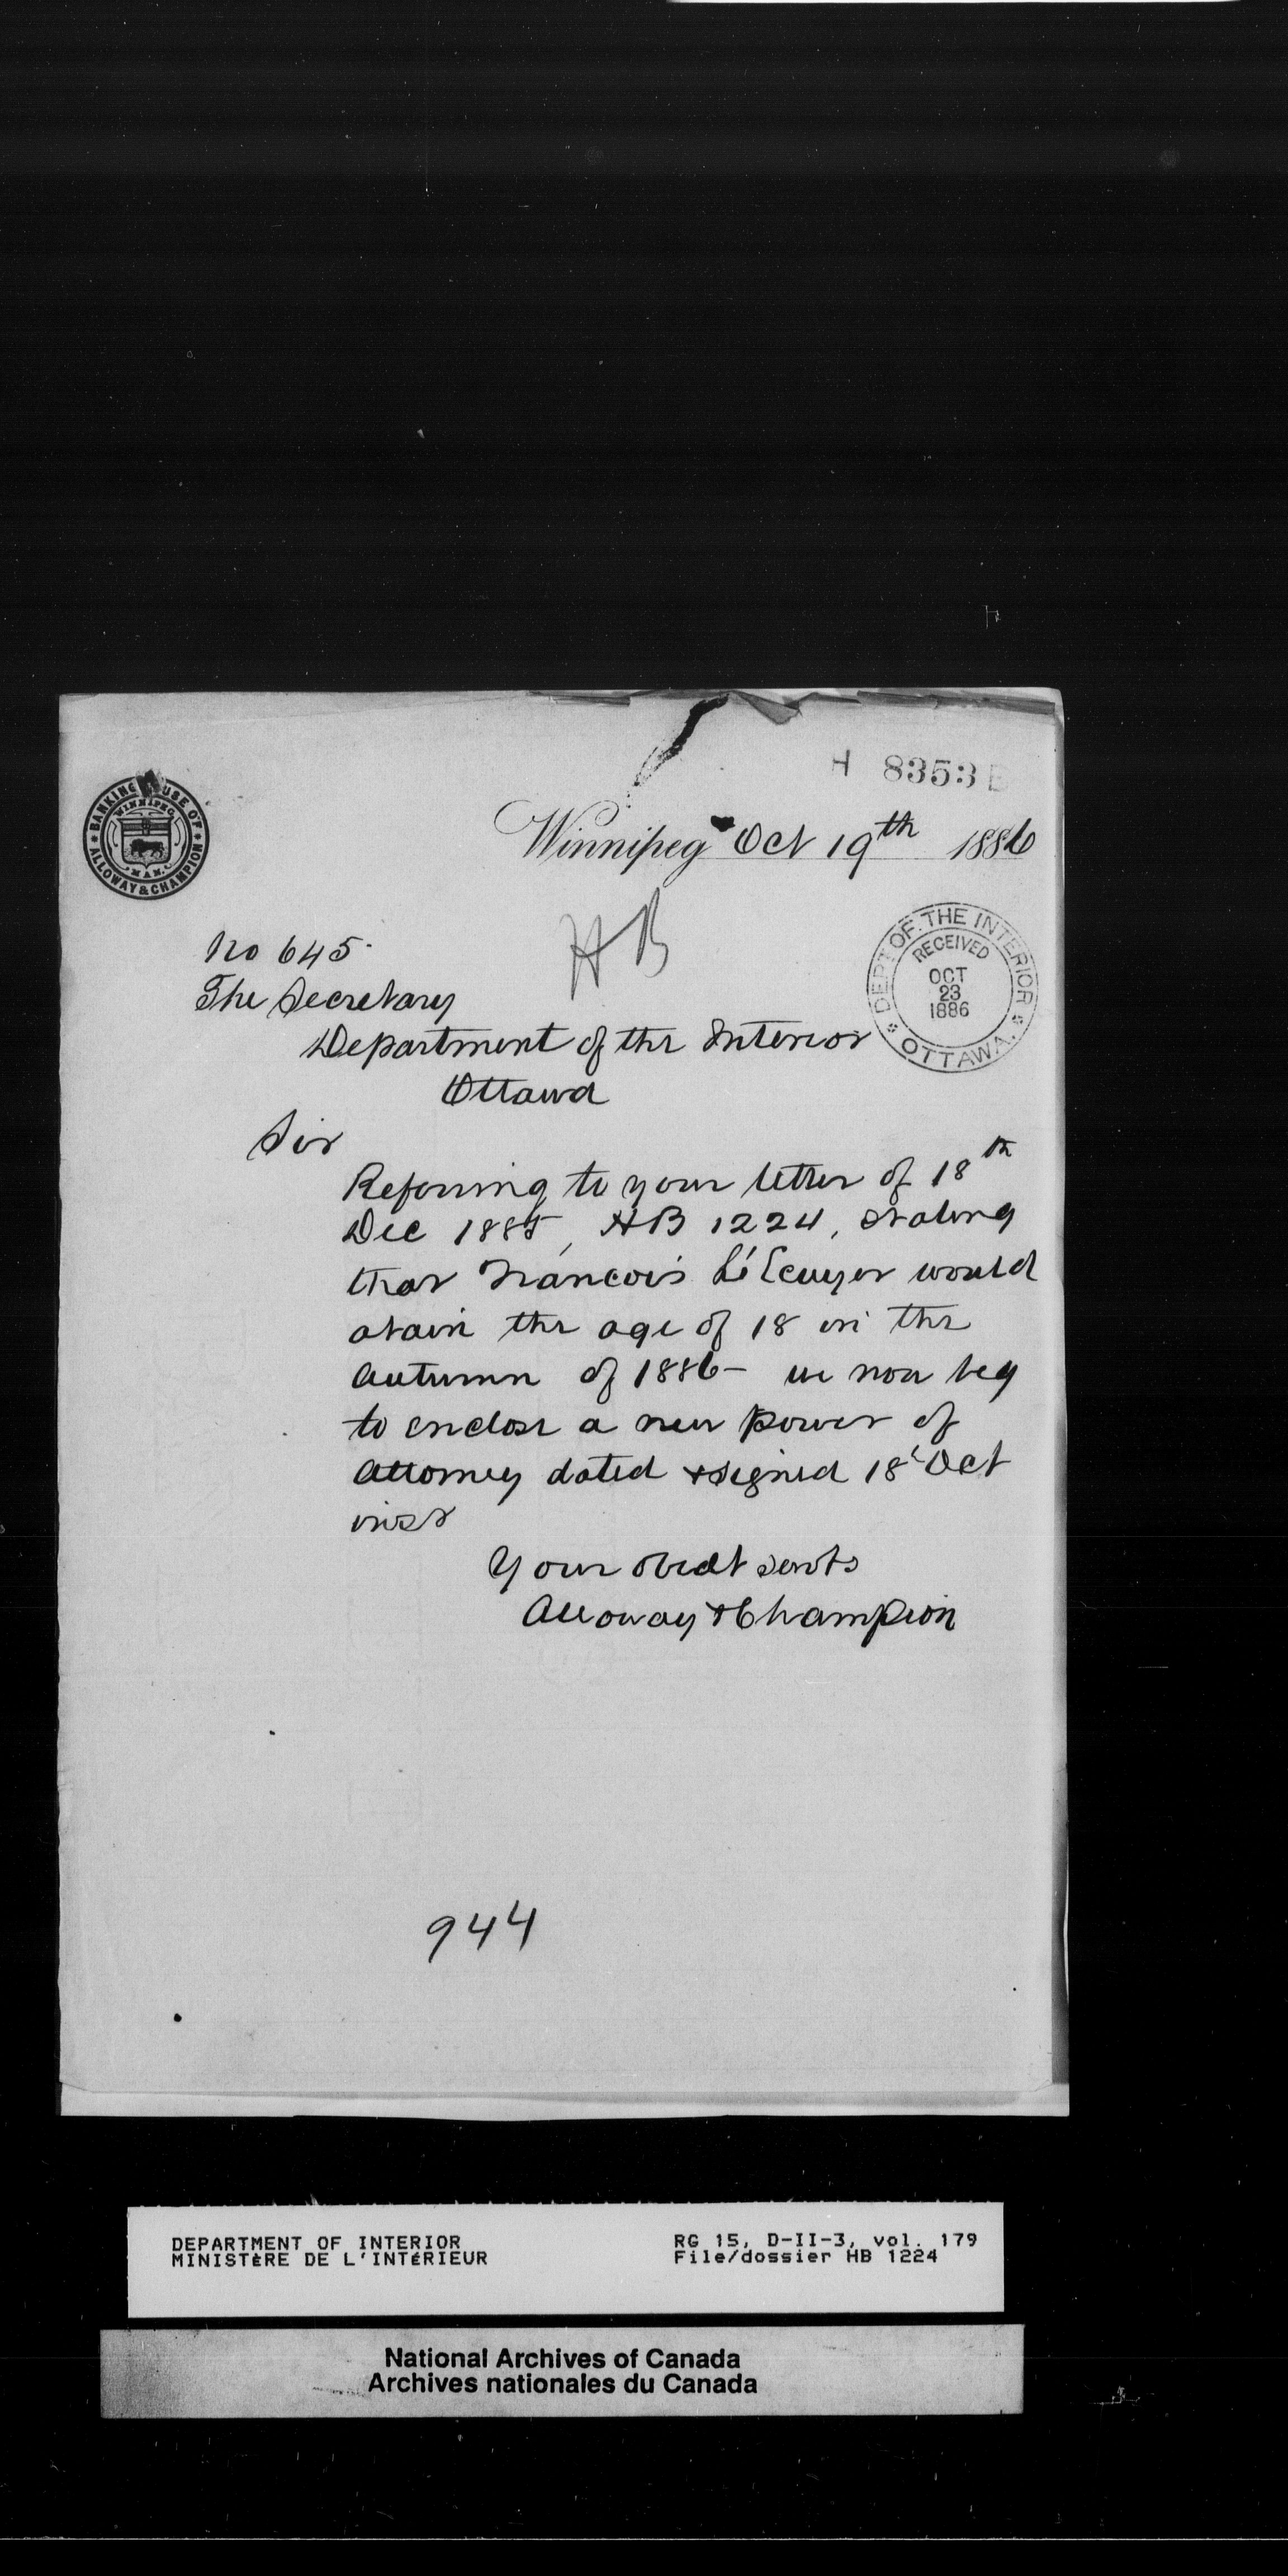 H 8353 B
BANKING HOUSE OF
ALLOWAY & CHAMPION
WINNIPEG
MAN.
Winnipeg Oct 19th 1886
HB
DEPT OF THE INTERIOR
RECEIVED
OCT
23
1886
OTTAWA.
No 645.
The Secretary
Department of the Interior
Ottawa
Sir
Referring to your letter of 18th
Dec 1885, HB 1224, stating
that Francois L'Ecuyer would
atain the age of 18 in the
Autumn of 1886 - we now beg
to enclose a new Power of
Attorney dated & signed 18' Oct
inst
Your obedt servts
Alloway & Champion
944
DEPARTMENT OF INTERIOR
MINISTÈRE DE L'INTÉRIEUR
RG 15, D-II-3, vol. 179
File/dossier HB 1224
National Archives of Canada
Archives nationales du Canada